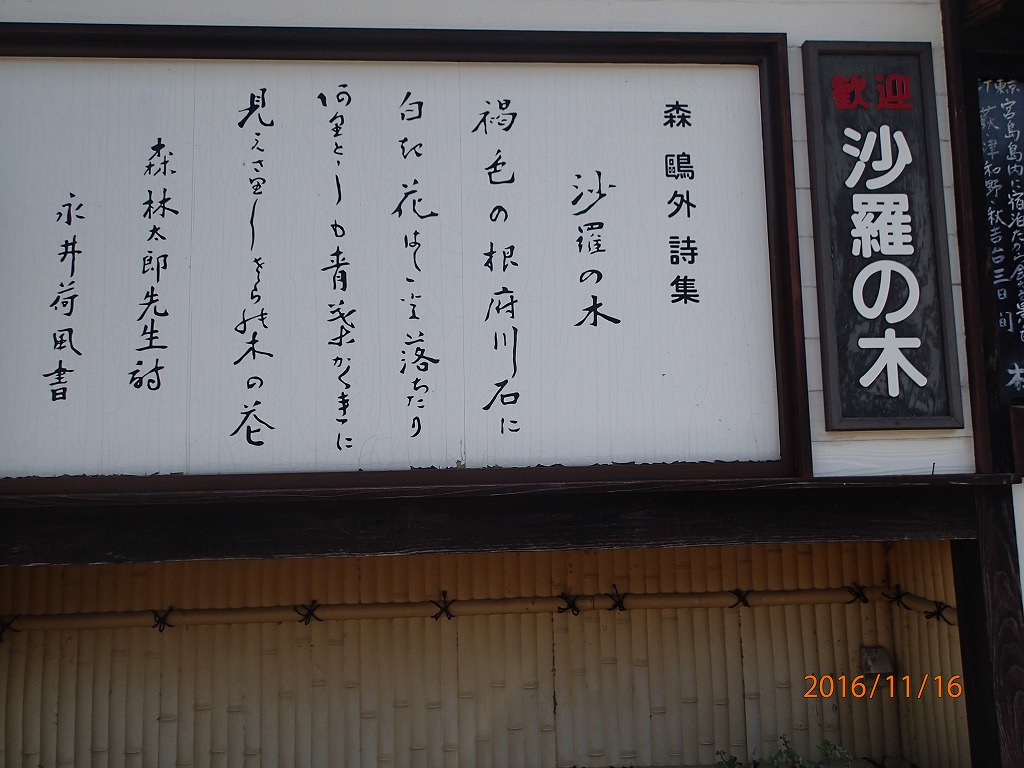 宮島島内に宿泊だから
萩・津和野・秋吉台三日間
歓迎
沙羅の木
森鷗外詩集
沙羅の木
褐色の根府川石に
白き花はたと落ちたり
ありとしも青葉かくれに
見えさりしさらの木の花
森林太郎先生詩
永井荷風書
2016/11/16